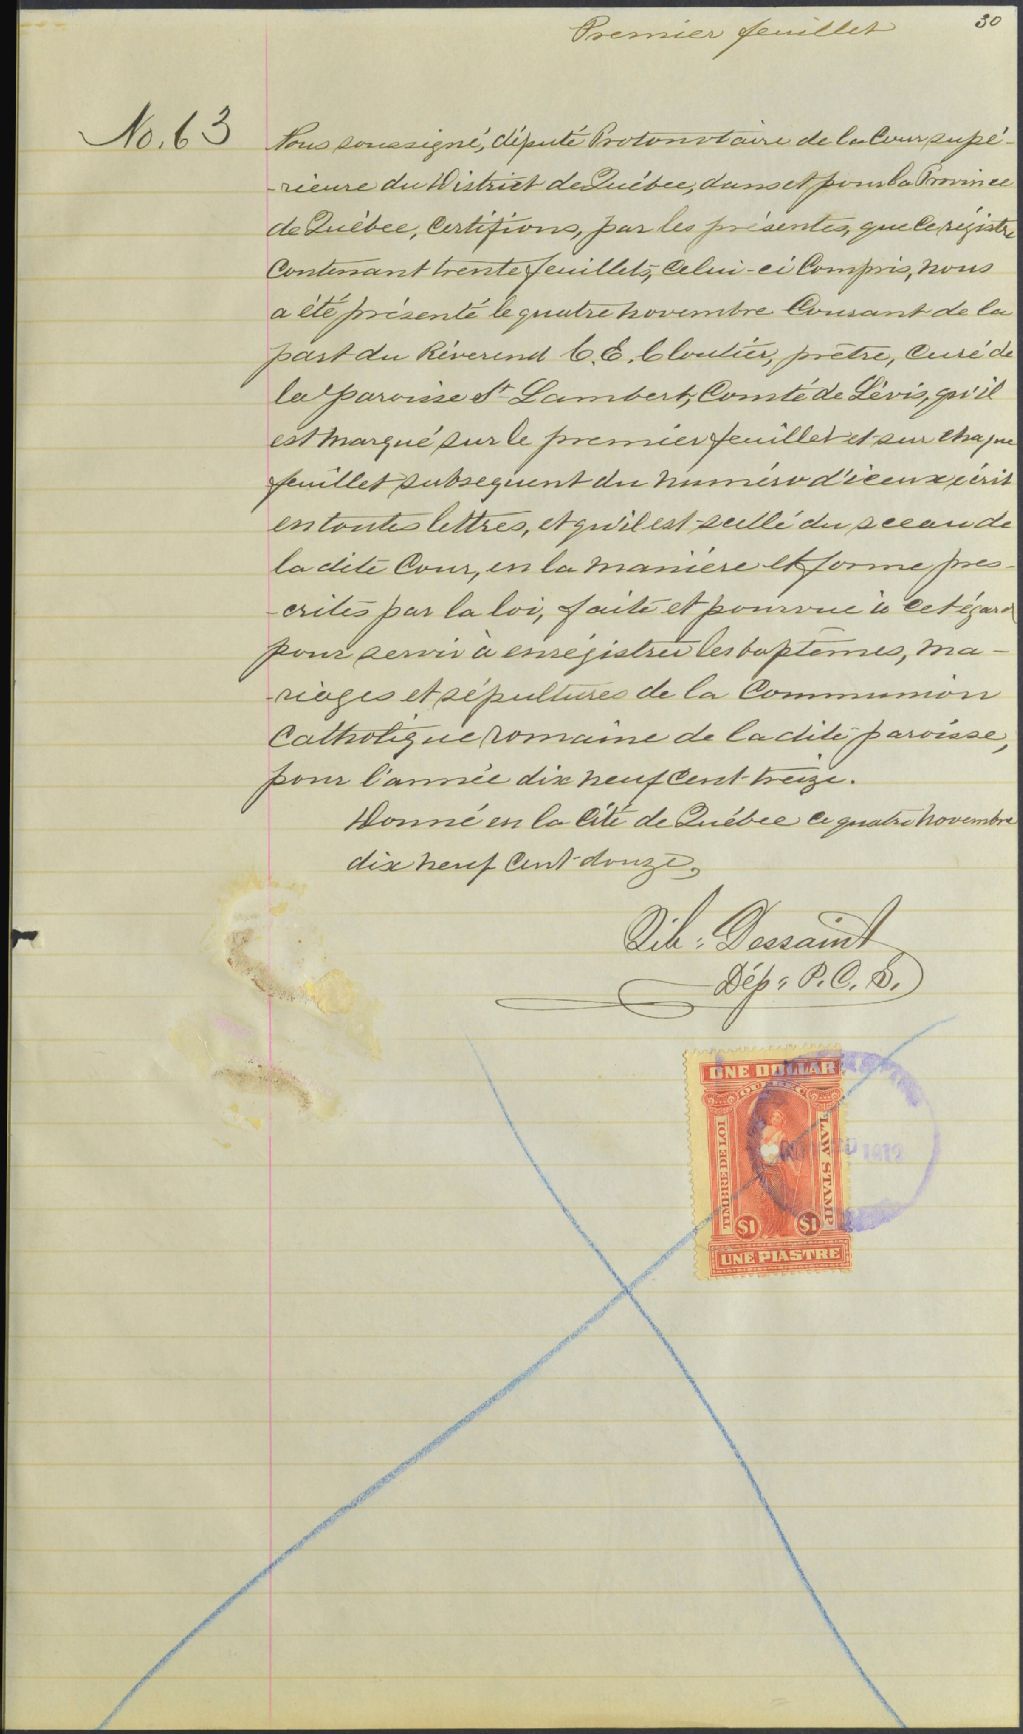 Premier feuillet
30
No. 63
Nous soussigné, député Protonotaire de la Cour supé-
-rieure du District de Québec, dans et pour la Province
de Québec, Certifions, par les présentes, que ce régistre
Contenant trente feuillets, Celui-ci Compris, nous
a été présenté le quatre novembre Courant de la
part du Révérend C. E. Cloutier, prêtre, Curé de
la paroisse St Lambert, Comté de Lévis, qu'il
est marqué sur le premier feuillet et sur chaque
feuillet subsequent du numéro d'iceux écrit
en toutes lettres, et qu'il est scellé du sceau de
la dite Cour, en la manière et forme pres-
-crites par la loi, faite et pourvue à cet égard
pour servir à enrégistrer les baptêmes, ma-
-riages et sépultures de la Communion
Catholique romaine de la dite paroisse,
pour l'année dix neuf Cent treize.
Donné en la Cité de Québec ce quatre novembre
dix neuf Cent douze,
Dessaint
Dép: P. C. S.
ONE DOLLAR
QUEBEC
TIMBRE DE LOI
LAW STAMP
$1
$1
UNE PIASTRE
1912